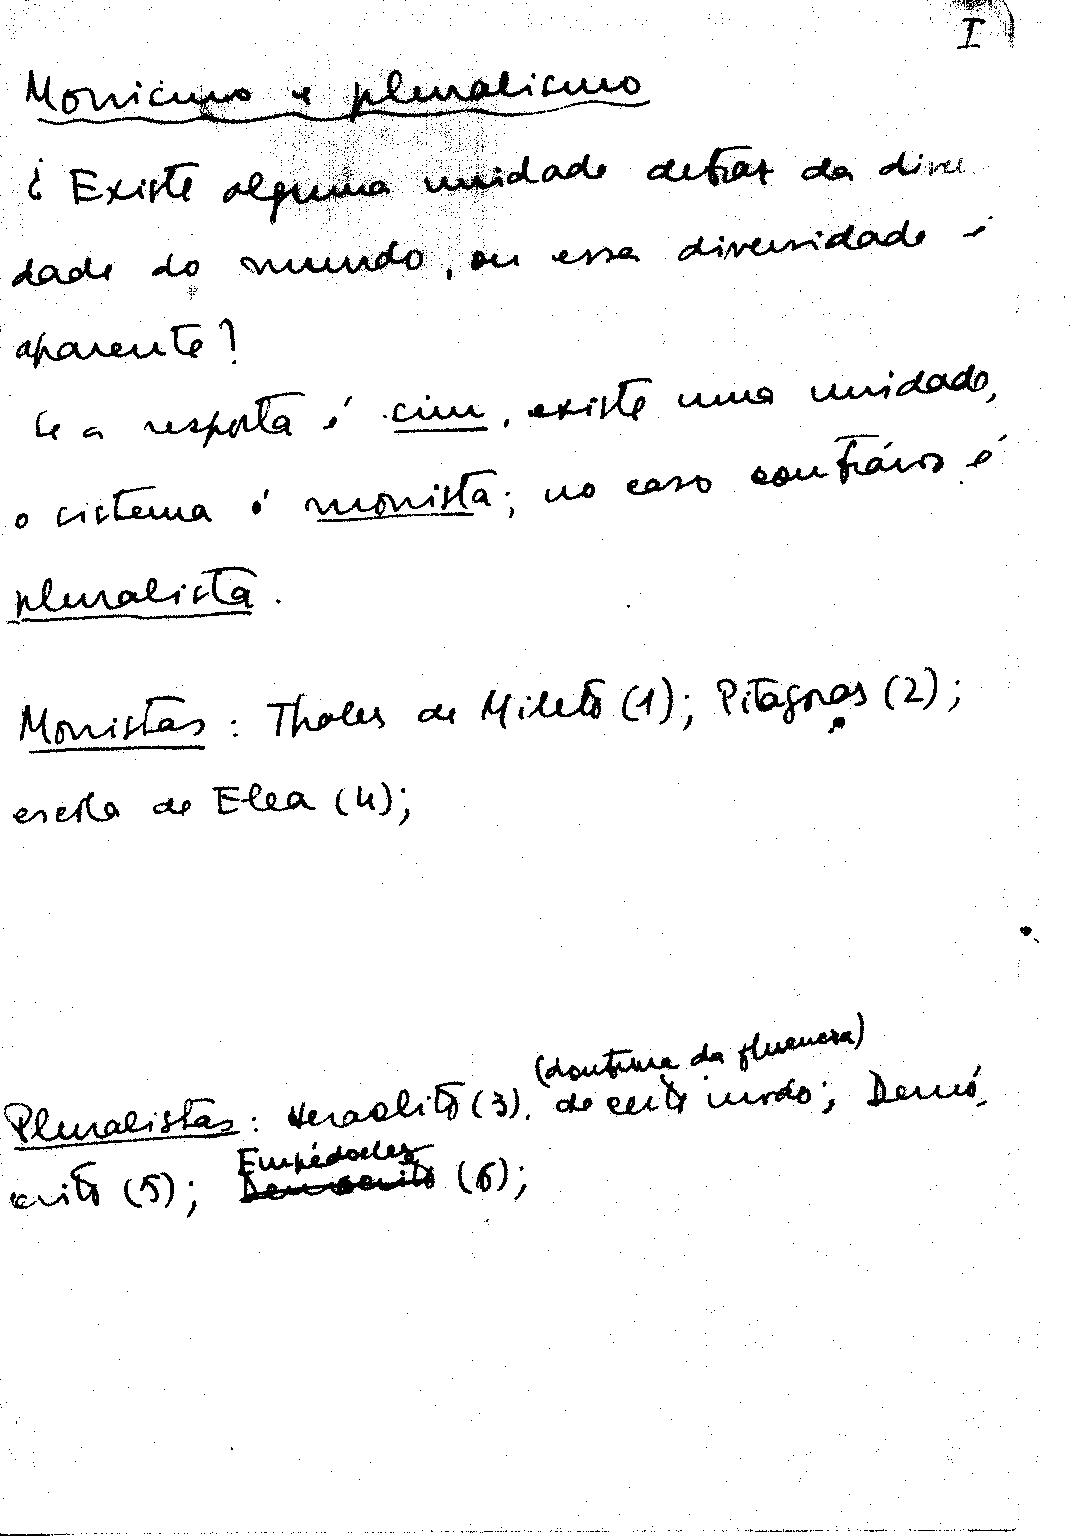 I
Monismo e pluralismo
¿ Existe alguma unidade detras da diver
dade do mundo, ou essa diversidade é
aparente?
Se a resposta é sim, existe uma unidade,
o sistema é monista; no caso contrário é
pluralista.
Monistas: Thales de Mileto (1); Pitagoras (2);
escola de Elea (4);
(doutrina da fluencia)
Pluralistas: Heraclito (3), de certo modo; Demó-
Empédocles
crito (5); Democrito (6);